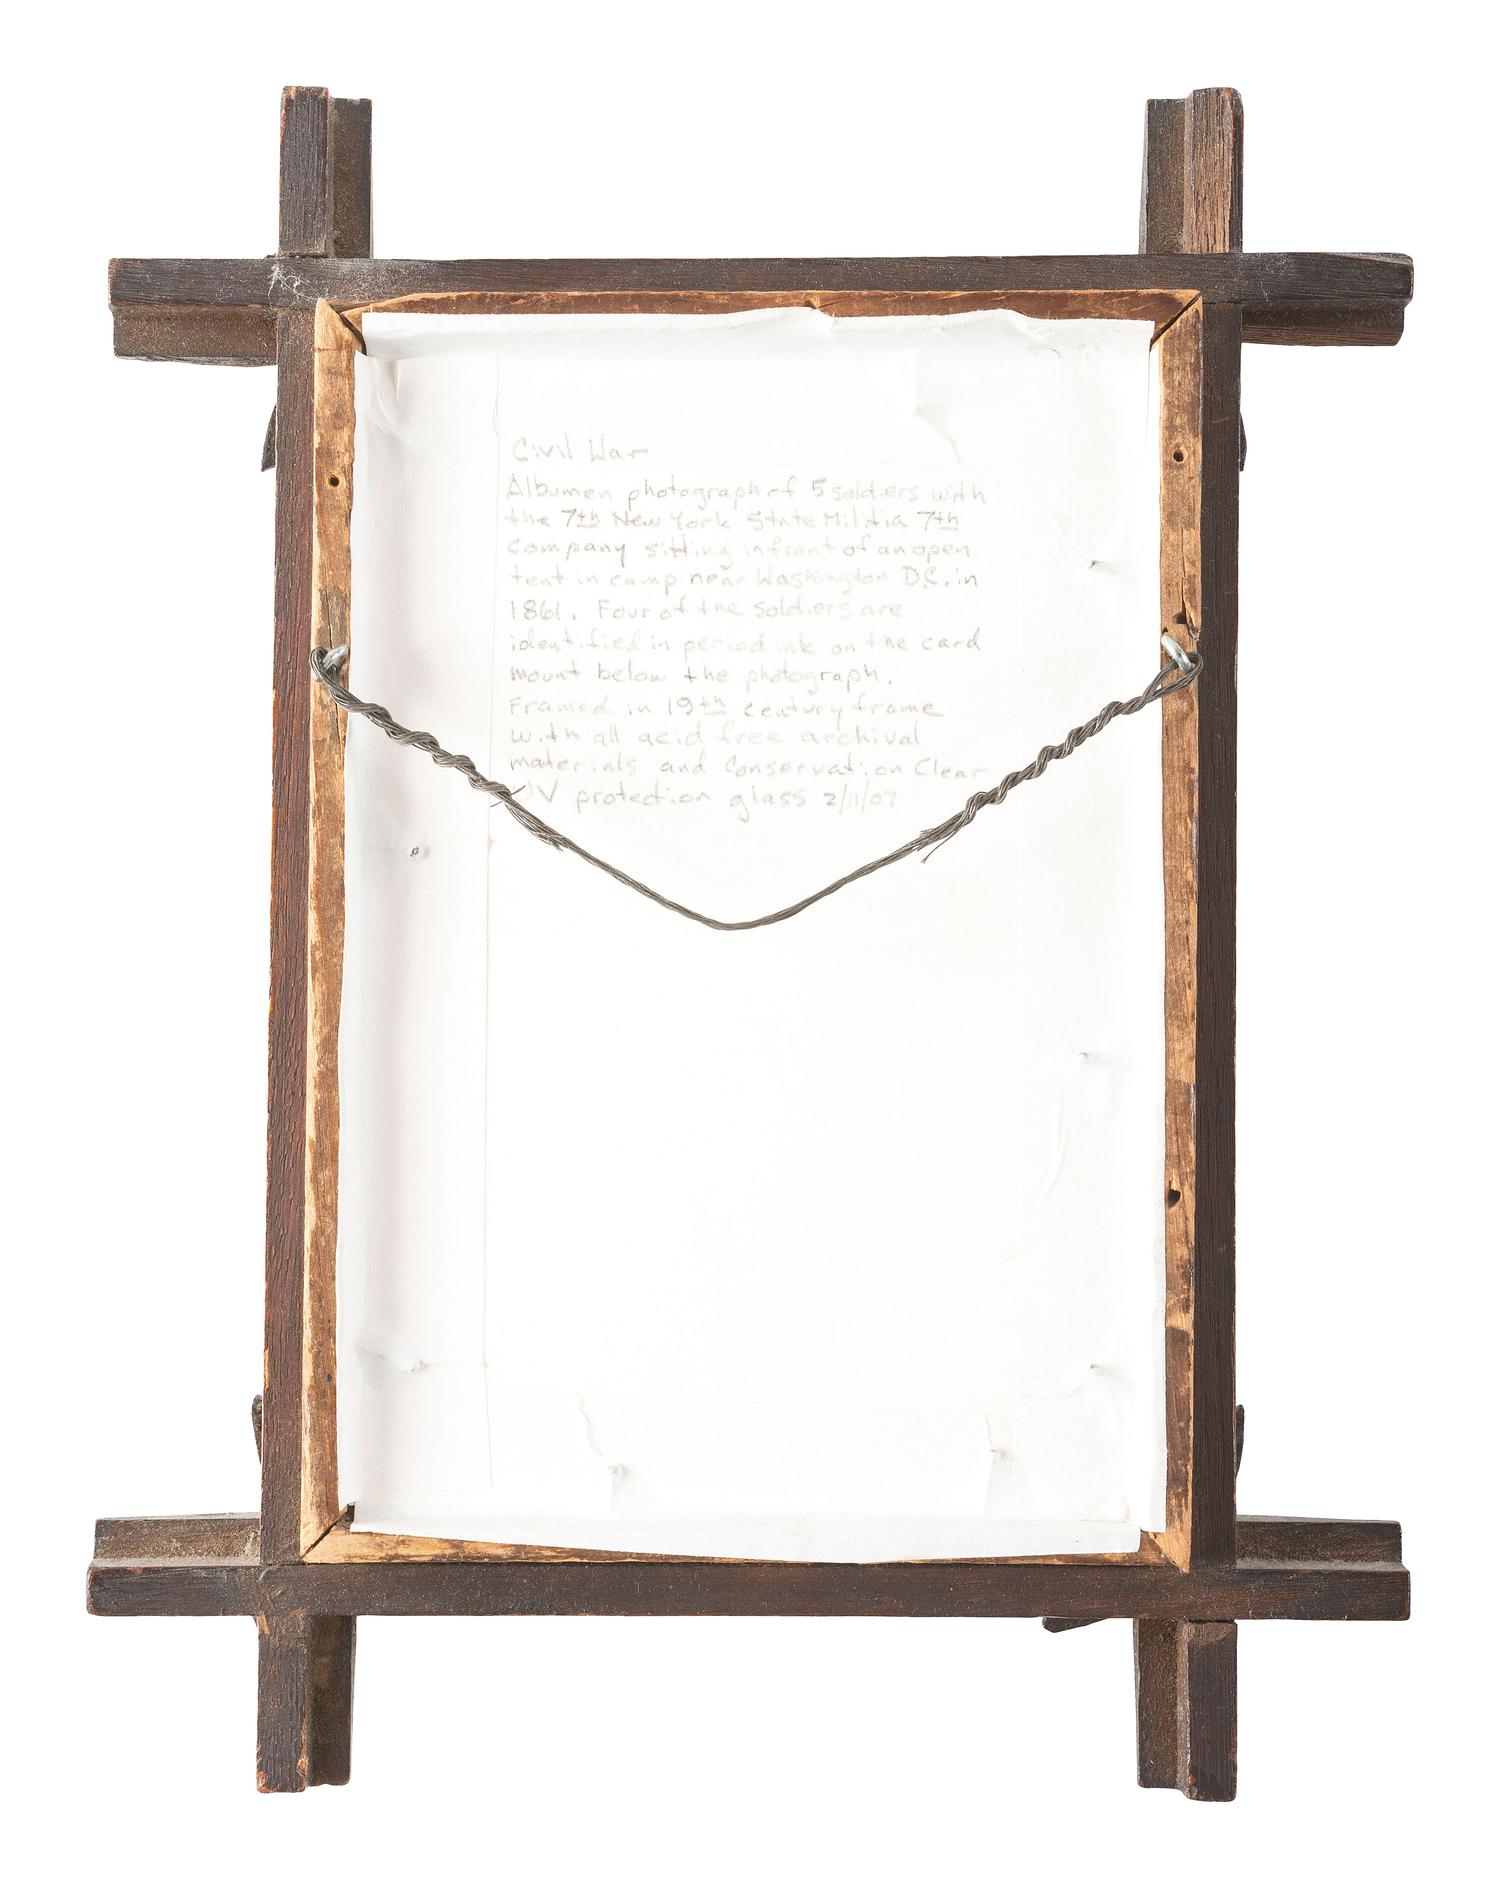 Civil War
Albumen photograph of 5 soldiers with
the 7th New York State Militia 7th
company sitting in front of an open
tent in camp near Washington D.C. in
1861. Four of the soldiers are
identified in period ink on the card
mount below the photograph.
Framed in 19th century frame
with all acid free archival
materials and Conservation Clear
UV protection glass 2/11/07